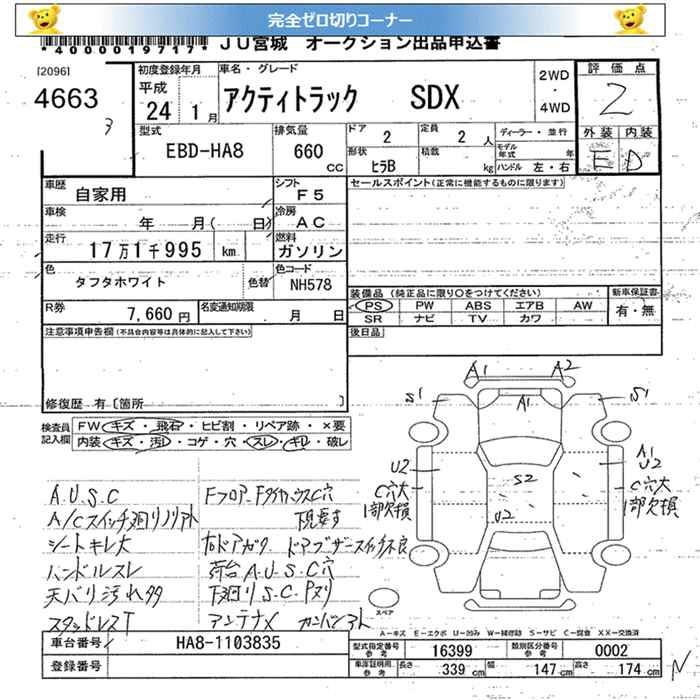 完全ゼロ切りコーナー
*4000019717* JU宮城 オークション出品申込書
[2096]
4663
3
初度登録年月
平成
24 1月
車名・グレード
アクティトラック SDX
2WD
・
4WD
評価点
2
外装 内装
E D
型式
EBD-HA8
排気量
660
CC
ドア
2
定員
2 人
形状
ヒラB
積載
kg
ディーラー・並行
モデル年式 年
ハンドル 左・右
車歴
自家用
シフト
F5
セールスポイント(正常に機能するものに限ります)
車検
年 月( 日)
冷房
AC
走行
17万1千995 km
燃料
ガソリン
色
タフタホワイト
色替
色コード
NH578
R券
7,660円
名変通知期限
月 日
装備品 (純正品に限り○をつけてください)
PS PW ABS エアB AW
SR ナビ TV カワ
新車保証書
有・無
後日品
注意事項申告欄(不具合内容等は具体的に記入して下さい)
修復歴 有〔箇所 〕
検査員記入欄
FW キズ・飛石・ヒビ割・リペア跡・×要
内装 キズ・汚レ・コゲ・穴・スレ・キレ・破レ
A.U.S.C
A/Cスイッチ廻り
シートキレ大
ハンドルスレ
天バリ汚れ多
スタッドレスT
Fフロア・Fタイヤハウス穴
下廻り S.C
荷台A.U.S.C穴
アンテナ
A1 A2
S1 A1 S1
U2 A1 U2
S2
U2
C穴大
1部欠損
C穴大
1部欠損
スペア
A-キズ E-エクボ U-凹み W-補修跡 S-サビ C-腐食 XX-交換済
車台番号
HA8-1103835
登録番号
型式指定番号 参考
16399
類別区分番号 参考
0002
車庫証明用 参考
長さ 339 cm 幅 147 cm 高さ 174 cm
N